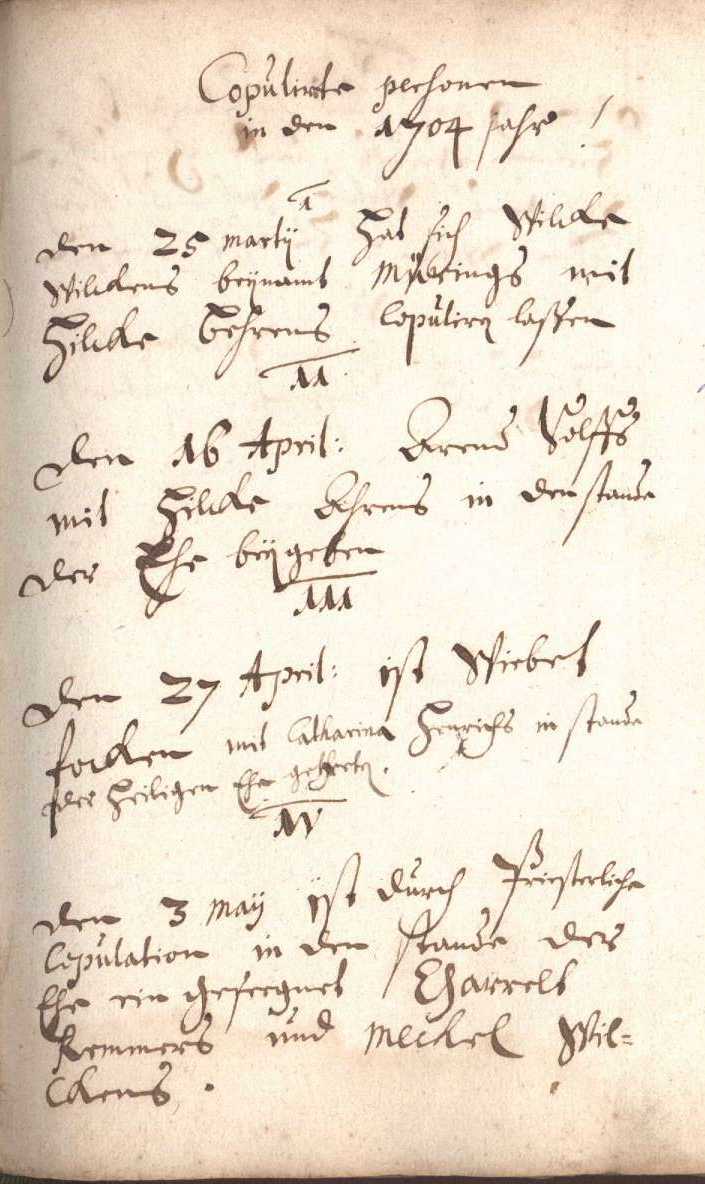 Copulirte persohnen
in den 1704 Jahr
I
den 25 martij hat sich Wilcke
Wilckens beynamt mit
Hilcke Behrens Copuliren lassen
II
den 16 April: Arend
mit Hilcke Ahrens in den stande
der Ehe begeben
III
den 27 April: ist Wiebet
focken mit Catharina Henrichs in stande
der Heiligen Ehe getreten.
IV
den 3 maij ist durch Priesterliche
Copulation in den stande der
Ehe ein gesegnet Gharrelt
Remmers und meckel Wil=
ckens.